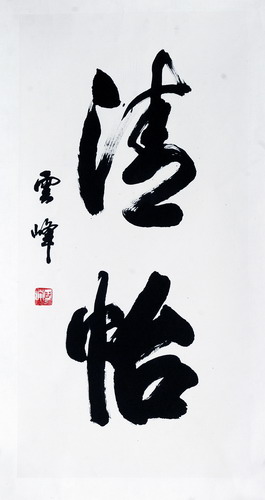 清怡
雲峰